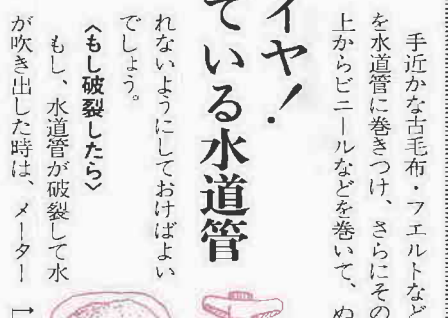 手近かな古毛布・フエルトなど
を水道管に巻きつけ、さらにその
上からビニールなどを巻いて、ぬ
イヤ！
ている水道管
れないようにしておけばよい
でしょう。
〈もし破裂したら〉
もし、水道管が破裂して水
が吹き出した時は、メーター